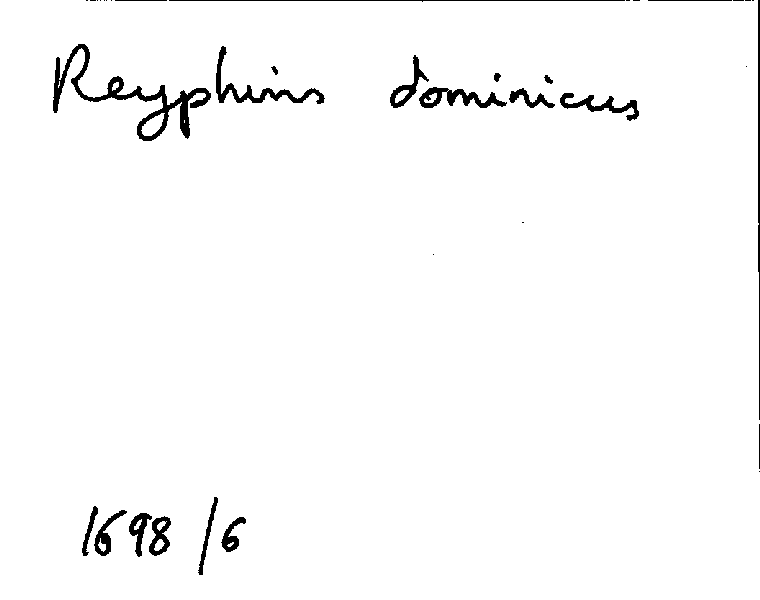 Reyphins dominicus
1698/6